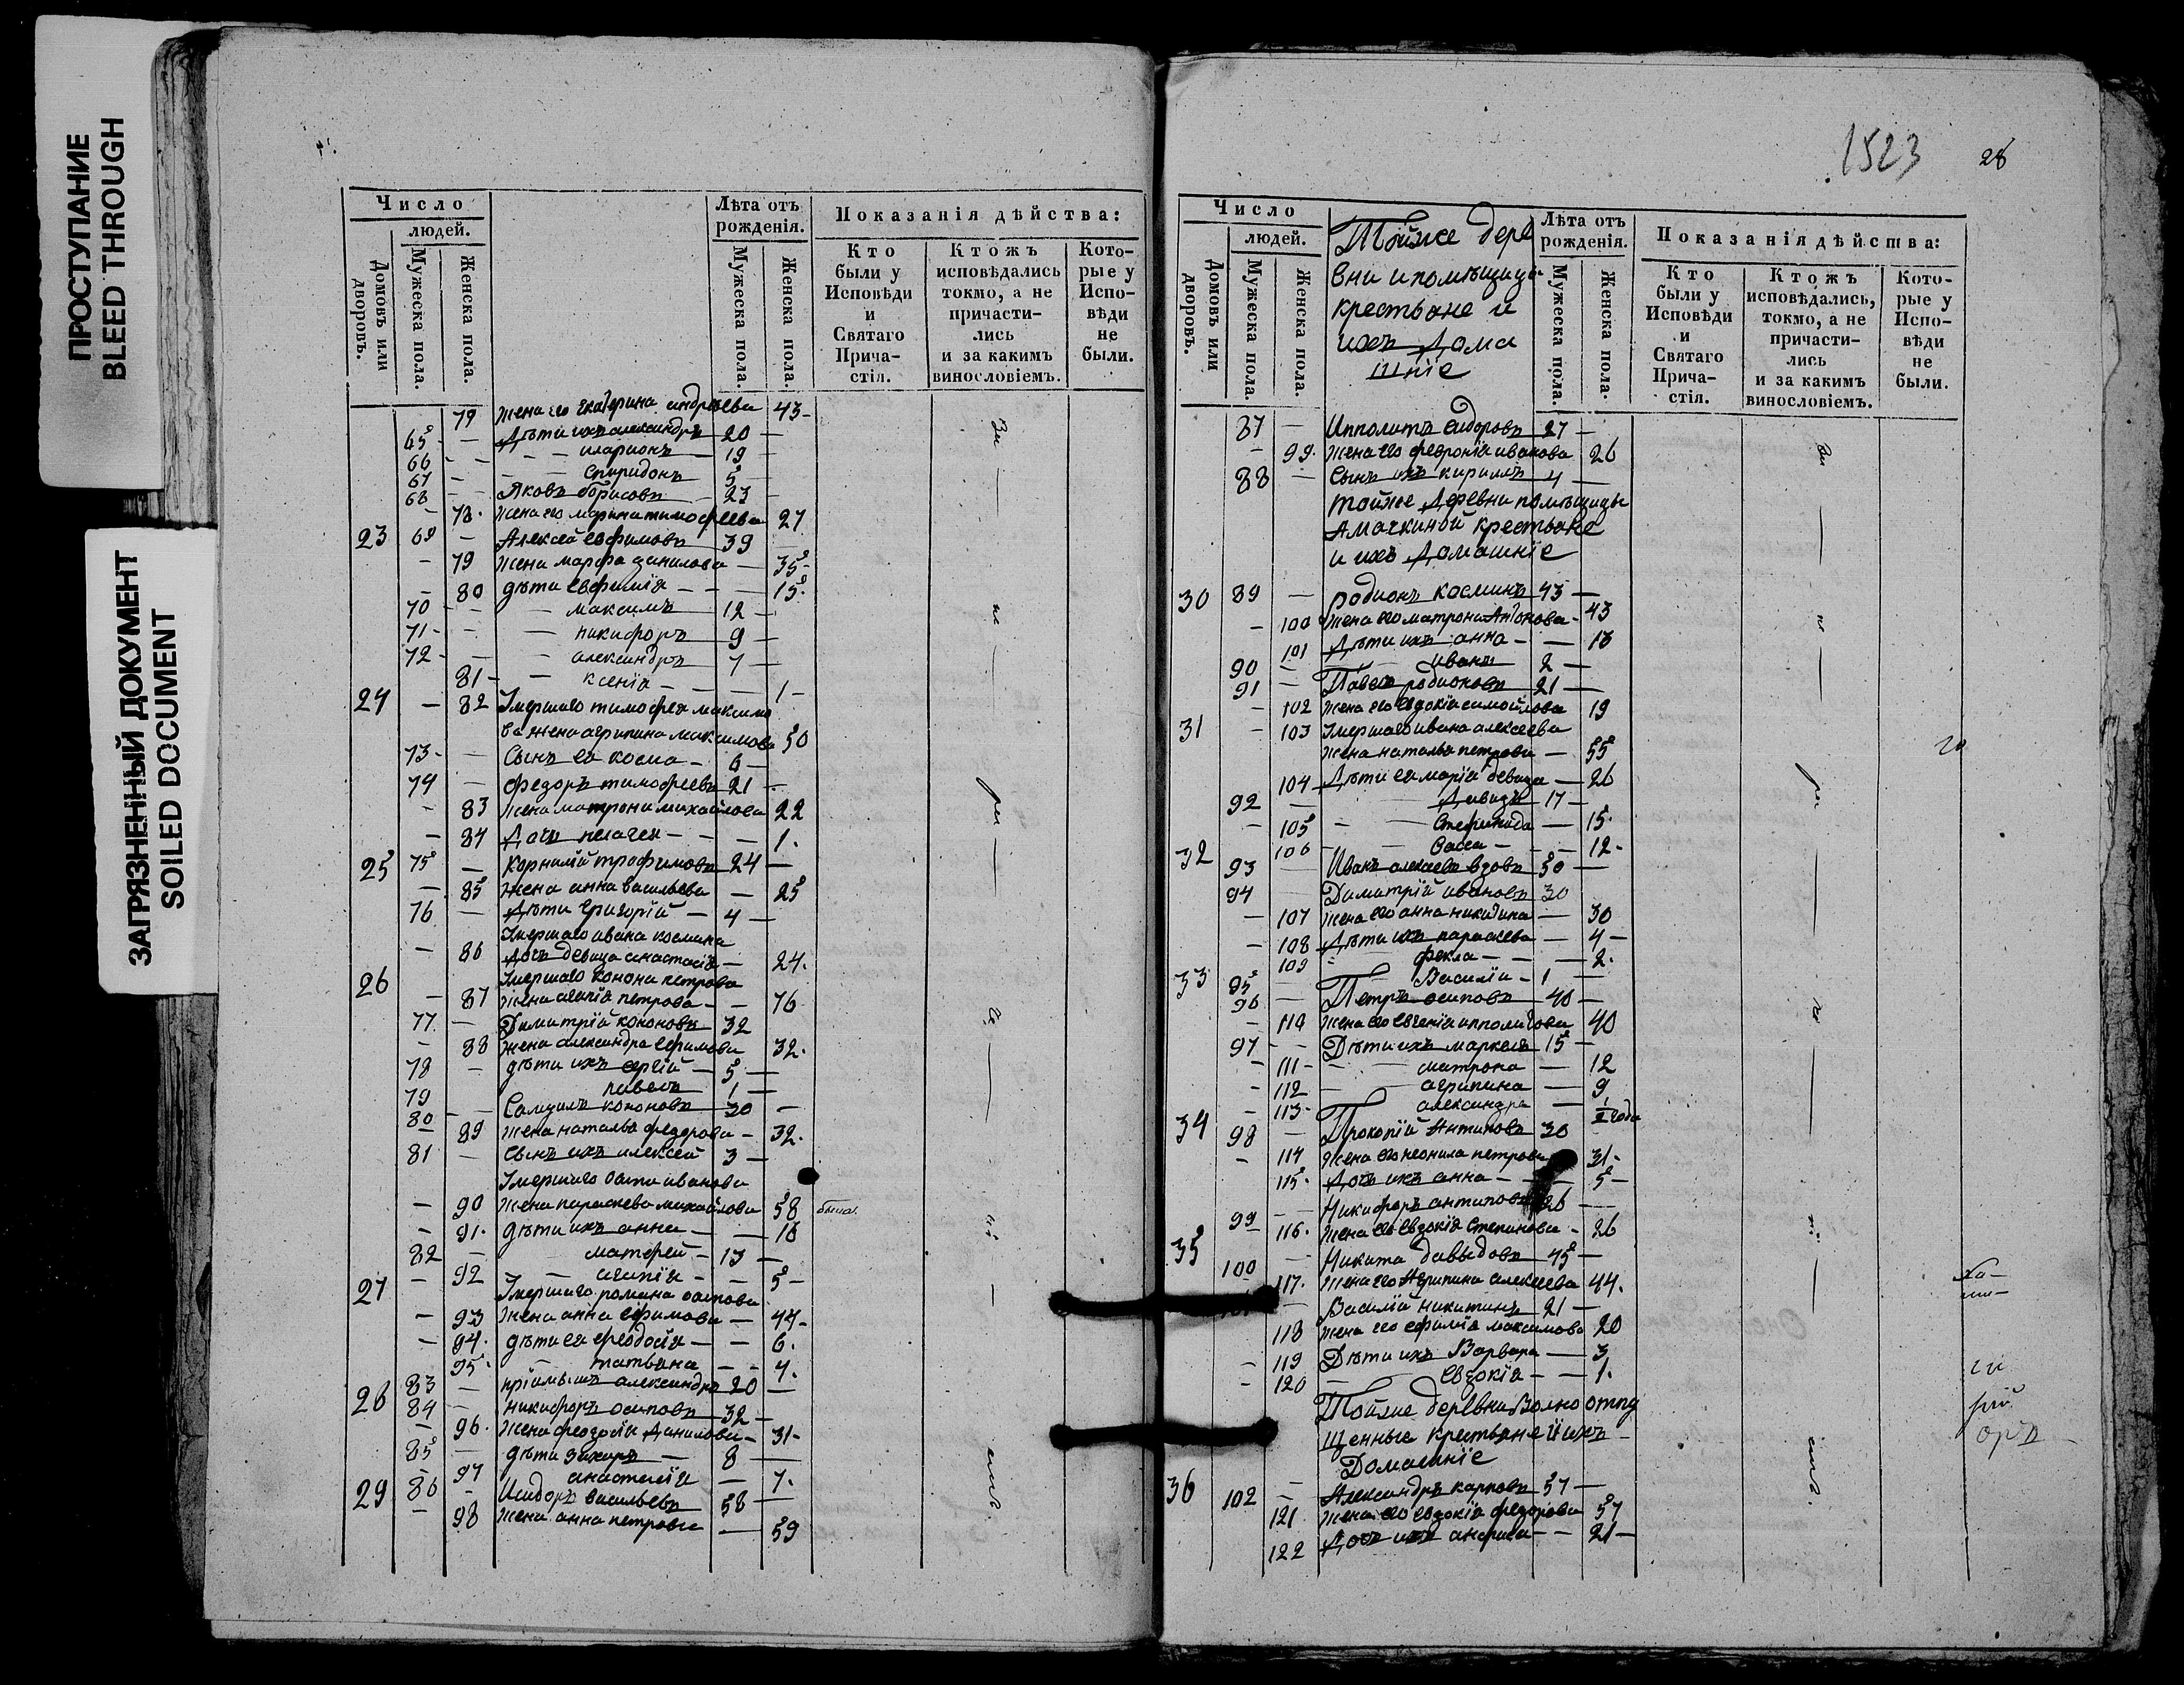 ПРОСТУПАНИЕ
BLEED THROUGH
ЗАГРЯЗНЕННЫЙ ДОКУМЕНТ
SOILED DOCUMENT
Число
людей.
Домовъ или дворовъ.
Мужеска пола.
Женска пола.
Лѣта отъ рожденія.
Мужеска пола.
Женска пола.
Показанія дѣйства:
Кто были у Исповѣди и Святаго Прича-стія.
Ктожъ исповѣдались токмо, а не причасти-лись и за какимъ винословіемъ.
Кото-рые у Испо-вѣди не были.
79 жена его Екатерина андреева 43-
65 - Дѣти ихъ александръ 20 -
66 - - - иларионъ 19 -
67 - - - Спиридонъ 5 -
68 - - Яковъ борисовъ 23 -
- 78. жена его марина тимофеева 27
23 69 - Алексей евфимовъ 39
- 79 жена марфа данилова - 35-
- 80 дѣти евфимія - - - 15.
70 - - максимъ 12 -
71 - - никифоръ 9 -
72 - - александръ 7 -
81 - - ксенія - - - 1-
24 - 82 Умершаго тимофея максимо
ва жена агрипина максимова 50
73 - - Сынъ ея косма - 6 -
74 - федоръ тимофеевъ 21 -
- 83 жена матрона михайлова 22
- 84 Дочь пелагея - - - 1.
25 75 - Корнилій трофимовъ 24 -
- 85 жена анна васильева - 25
76 - Дѣти григорій - 4 -
Умершаго ивана космина
- 86 дочь девица анастасія - 24.
26 Умершаго конона петрова
- 87 жена агапія петрова - - 76
77 - Димитрій кононовъ 32
- 88 жена александра ефимова 32.
78 - дѣти ихъ сергій - 5 -
79 павелъ 1 -
80 - - Самуилъ кононовъ 30 -
89 жена наталья федорова - 32.
81 - Сынъ ихъ алексей 3 -
Умершаго иванова
- 90 жена параскева михайлова 58 была
- 91. дѣти ихъ анна - - 18
82 - матфей - 13 -
- 92 - агапія - - 5-
27 Умершаго романа осипова
- 93 жена анна ефимова - 44-
- 94. дѣти ея феодосія - - 6.
95. - татьяна - - 4.
83 - пріймышъ александръ 20 -
28 84 - никифоръ осиповъ 32 -
- 96. жена феодосія данилова - 31-
85 - дѣти захаръ - 8 -
- 97 анастасія - 7.
29 86 - Исидоръ васильевъ 58 -
- 98 жена анна петрова - 59
1523
28
Число
людей.
Домовъ или дворовъ.
Мужеска пола.
Женска пола.
Тойже дере
вни и помѣщицы
крестьяне и
ихъ Дома
шніе
Лѣта отъ рожденія.
Мужеска пола.
Женска пола.
Показанія дѣйства:
Кто были у Исповѣди и Святаго Прича-стія.
Ктожъ исповѣдались, токмо, а не причасти-лись и за какимъ винословіемъ.
Кото-рые у Испо-вѣди не были.
87 - Ипполитъ сидоровъ 27 -
- 99. жена его феврония иванова 26
88 - Сынъ ихъ кирилъ 4 -
тойже Деревни помѣщицы
крестьяне
и ихъ Домашніе
30 89 - родионъ косминъ 43 -
- 100 жена его матрона Антонова - 43
101 Дѣти ихъ анна - - 13
90 - иванъ 2 -
91 - Павелъ родионовъ 21 -
- 102 жена его евдокія самойлова 19
31 - 103 Умершаго ивана алексеева
жена наталья петрова - 55
104 - Дѣти ея марія девица - 26
92 - - Давидъ 17 -
- 105 - Стефанида - 15.
106 - Васса - - - 12-
32 93 - Иванъ алексеевъ вдовъ 50 -
94 Димитрій ивановъ 30
- 107 жена его анна никитина - 30
- 108 Дѣти ихъ параскева - 4 -
109 - фекла - - - 2.
95 - Василій - 1 -
33 96 - Петръ осиповъ 40 -
- 110 жена его евгенія ипполитова 40
97 - - Дѣти ихъ маркелъ 15 -
- 111 - - матрона - 12
- 112 - агрипина - 9
- 113 - александра - 1 года
34 98 - Прокопій Антиповъ 30 -
- 114 жена его неонила петрова 31-
115. Дочь ихъ анна - - 5 -
99 - - Никифоръ антиповъ 26 -
116. жена его евдокія Степанова - 26
35 100 - Никита давыдовъ 45 -
117. жена его Агрипина алексеева 44.
- Василій никитинъ 21 -
118 жена его ефимія максимова 20
- 119 Дѣти ихъ Варвара - 3
- 120 - Евдокія - - 1.
Тойже деревни Вольно отпу
щенные крестьяне и ихъ
Домашніе
36 102 - Александръ карповъ 57 -
121 жена его евдокія федорова 57
122 Дочь ихъ анфиса - - 21 -